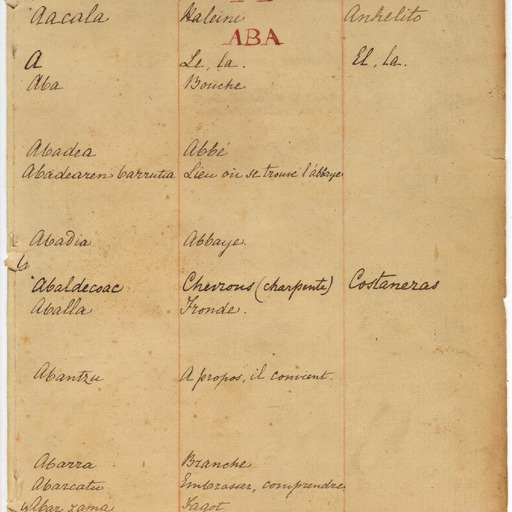 Aacala Haleine Anhelito
ABA
A Le, la. El, la.
Aba Bouche
Abadea Abbé
Abadearen barrutia Lieu où se trouve l'abbaye
Abadia Abbaye.
Abaldecoac Chevrons (charpente) Costaneras
Aballa Fronde.
Abantzu A propos, il convient.
Abarra Branche
Abarcatu Embrasser, comprendre
Abar zama Fagot